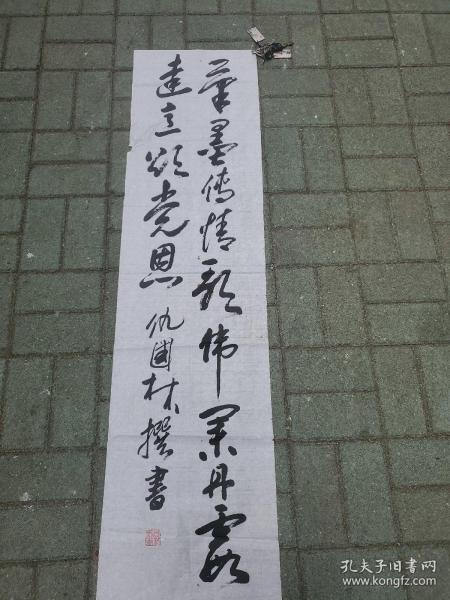 笔墨传情歌伟业丹霞
达意颂党恩
仇国林撰书
孔夫子旧书网
www.kongfz.com